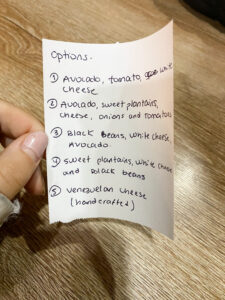 Options.
① Avocado, tomato, white
cheese
② Avocado, sweet plantains,
cheese, onions and tomatoes
③ Black beans, white cheese,
Avocado
④ sweet plantains, white cheese
and black beans
⑤ Venezuelan cheese
(handcrafted)